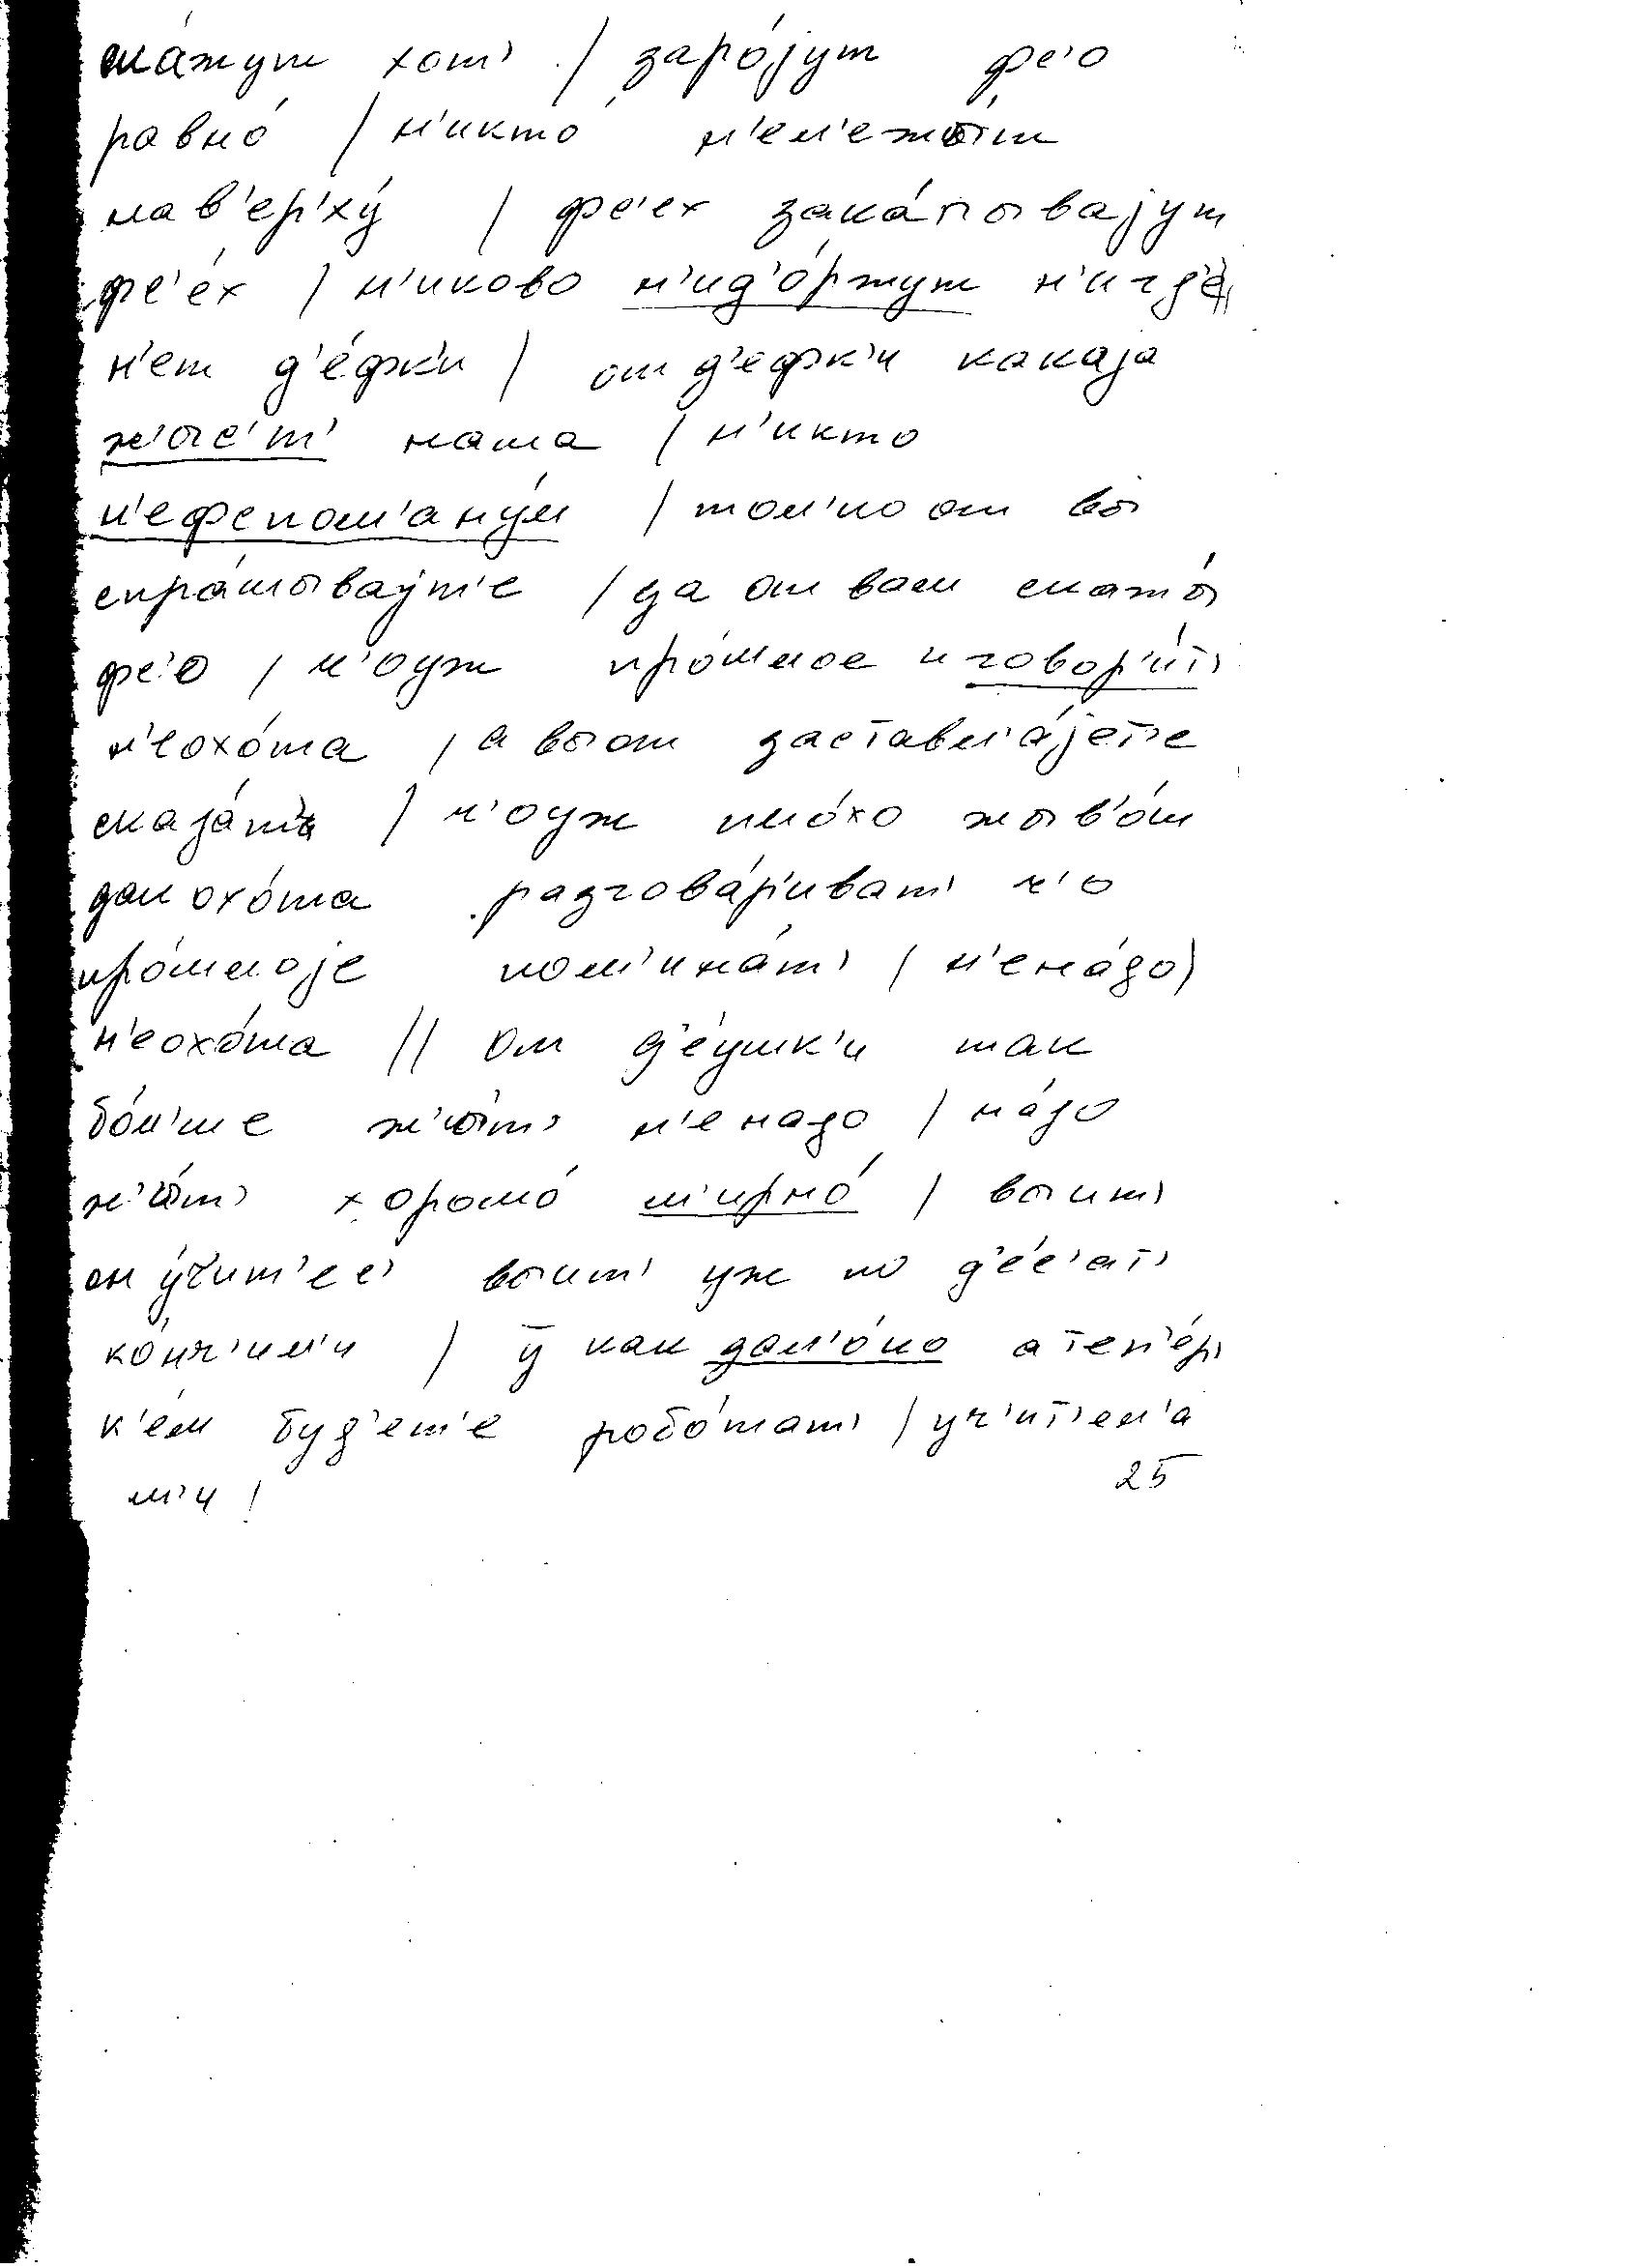 ска́жут хот' / заро́јут фс'о
равно́ / н'икто́ н'ел'ежы́т
нав'ер'ху́ / фс'ех зака́пывајут
фс'е́х / н'иково н'ид'о́ржут н'игд'е́
н'ет д'е́фк'и / от д'ефк'и какаја
ж'ыс'т' наша / н'икто
н'ефспом'ану́л / тол'ко от вы́
спра́шывајт'е / да от вам скажы́
фс'о / ч'оуж про́шлое и говор'и́т'
н'еохо́та / а вы от заставл'а́јет'е
сказа́т' / ч'оуж пло́хо жыв'о́м
дак охо́та разгова́р'иват' ч'о
про́шлоје пом'ина́т' / н'ена́до /
н'еохо́та // от д'е́ушк'и так
бо́л'ше ж'ы́т' н'енадо / на́до
ж'ы́т' хорошо́ м'ирно́ / выит'
он у́чит'ес' выит' уж по д'е́с'ат'
ко́нч'ил'и / ӯ как дал'о́ко а теп'е́р'
к'е́м буд'ет'е робо́тат' / уч'ит'ел'а
м'и /
25